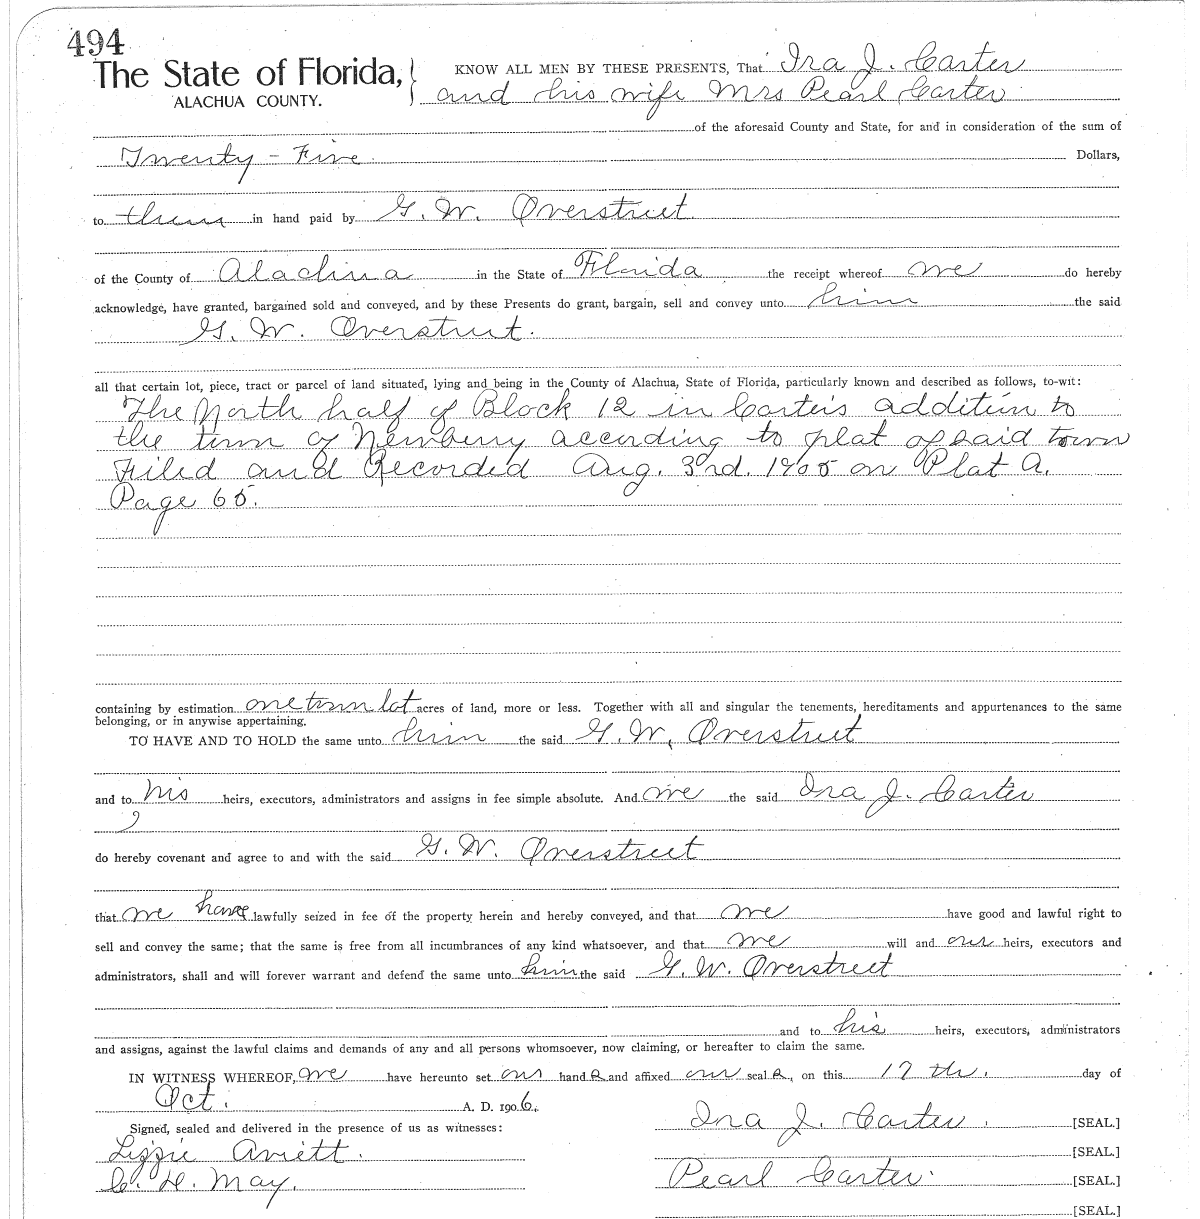 494
The State of Florida,
ALACHUA COUNTY.
KNOW ALL MEN BY THESE PRESENTS, That Ira J. Carter
and his wife Mrs Pearl Carter
of the aforesaid County and State, for and in consideration of the sum of
Twenty-Five Dollars,
to them in hand paid by G. W. Overstreet
of the County of Alachua in the State of Florida the receipt whereof we do hereby
acknowledge, have granted, bargained sold and conveyed, and by these Presents do grant, bargain, sell and convey unto him the said
G. W. Overstreet.
all that certain lot, piece, tract or parcel of land situated, lying and being in the County of Alachua, State of Florida, particularly known and described as follows, to-wit:
The North half of Block 12 in Carter's addition to
the town of Newberry according to plat of said town
Filed and Recorded Aug. 3rd. 1905 on Plat A.
Page 65.
containing by estimation one town lot acres of land, more or less. Together with all and singular the tenements, hereditaments and appurtenances to the same
belonging, or in anywise appertaining.
TO HAVE AND TO HOLD the same unto him the said G. W. Overstreet
and to his heirs, executors, administrators and assigns in fee simple absolute. And we the said Ira J. Carter
do hereby covenant and agree to and with the said G. W. Overstreet
that we have lawfully seized in fee of the property herein and hereby conveyed, and that we have good and lawful right to
sell and convey the same; that the same is free from all incumbrances of any kind whatsoever, and that we will and our heirs, executors and
administrators, shall and will forever warrant and defend the same unto him the said G. W. Overstreet
and to his heirs, executors, administrators
and assigns, against the lawful claims and demands of any and all persons whomsoever, now claiming, or hereafter to claim the same.
IN WITNESS WHEREOF, we have hereunto set our hands and affixed our seals, on this 17th. day of
Oct. A. D. 1906.
Signed, sealed and delivered in the presence of us as witnesses:
Ira J. Carter. [SEAL.]
Lizzie Aviett. [SEAL.]
C. H. May. Pearl Carter. [SEAL.]
[SEAL.]